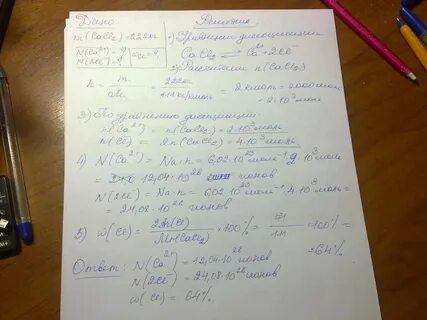 Дано
Решение:
m(CaCl₂) = 222кг
1) Уравнение диссоциации
N(Ca²⁺) = ?
N(2Cl⁻) = ?
ωCl = ?
CaCl₂ ⇄ Ca²⁺ + 2Cl⁻
2) Рассчитаем n(CaCl₂)
n = m/M = 222кг/111 кг/кмоль = 2 кмоль = 2000 моль
= 2·10³ моль
3) По уравнению диссоциации:
n(Ca²⁺) = n(CaCl₂) = 2·10³ моль
n(Cl⁻) = 2n(CaCl₂) = 4·10³ моль
4) N(Ca²⁺) = Na·n = 6,02·10²³ моль⁻¹·2·10³ моль
= 12,04·10²⁶ ионов
N(2Cl⁻) = Na·n = 6,02·10²³ моль⁻¹·4·10³ моль =
= 24,08·10²⁶ ионов
5) ω(Cl) = 2Ar(Cl)/Mr(CaCl₂) · 100% = 71/111 · 100% =
= 64%
Ответ: N(Ca²⁺) = 12,04·10²⁶ ионов
N(2Cl⁻) = 24,08·10²⁶ ионов
ω(Cl) = 64%